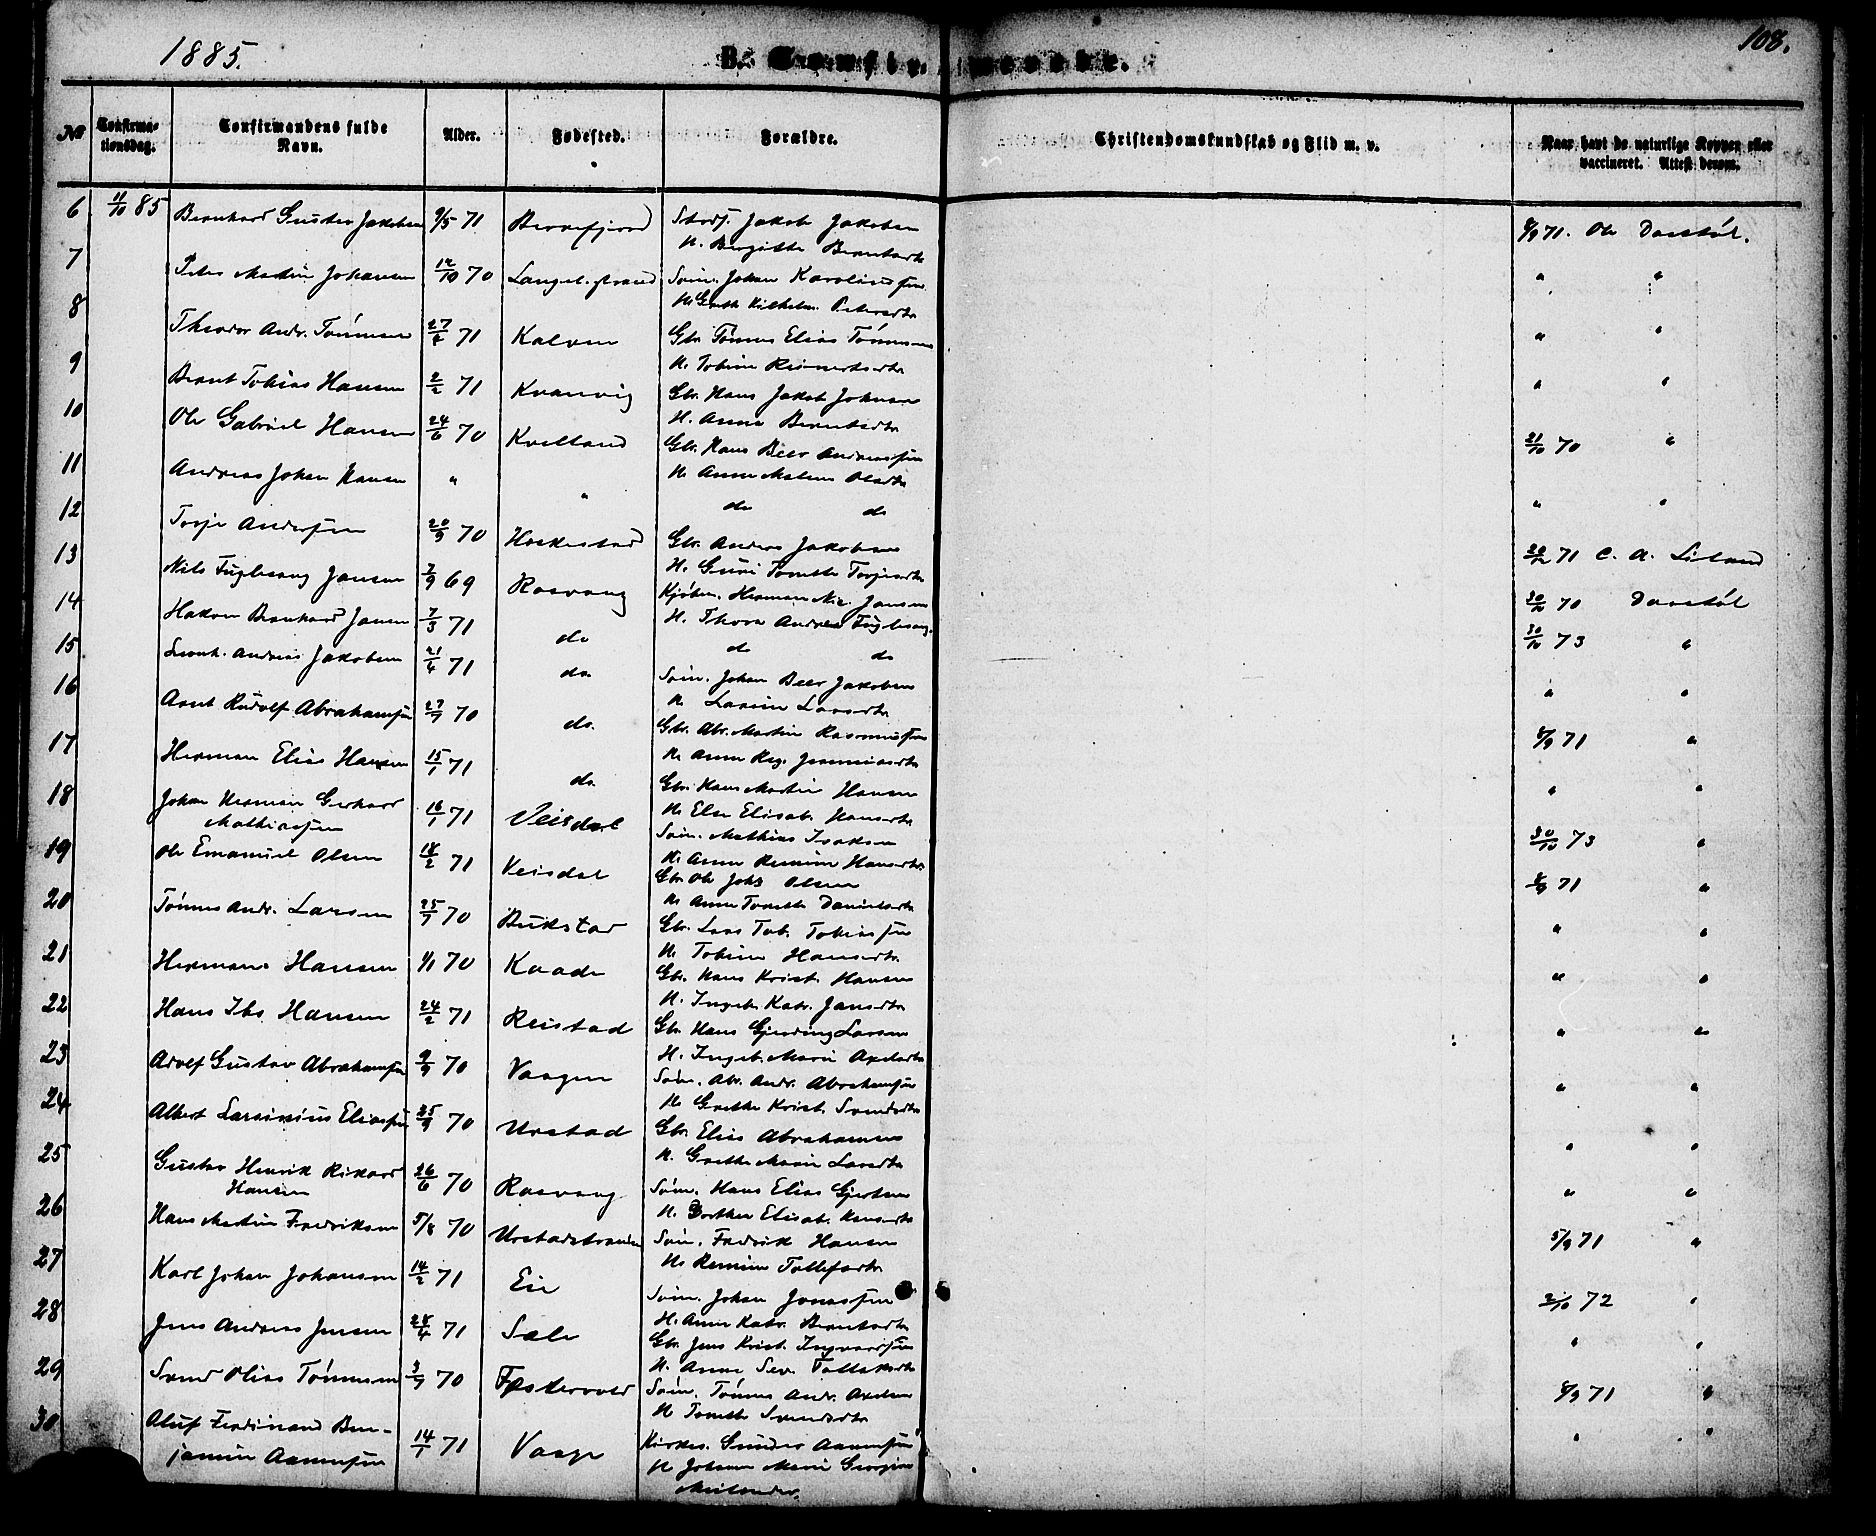 1885.
B. Confir
108.
No
Confirma-
tionsdag.
Confirmandens fulde
Navn.
Alder.
Fødested.
Forældre.
Christendomskundskab og Flid m. v.
Naar havt de naturlige Kopper eller
vaccineret. Attest derom.
6 11/10 85 Bernhard Gustav Jakobsen 9/5 71 Jakob Jakobsen
H. Birgitte Berntsdtr 71. Ole
7 Peter Martin Johansen 12/10 70 Søm. Johan Karoliussen " "
H. Greth Vilhelm. Petersdtr
8 Theodor Andr. Tønnesen 71 Kalven Gbr. Tønnes Elias Tønnesen " "
H. Tobine Reinertsdtr
9 Bernt Tobias Hansen 2/2 71 Kvanvig Gbr. Hans Jakob Johnsen " "
H. Anna Berntsdtr
10 Ole Gabriel Hansen 24/6 70 Kvelland Gbr. Hans Beer Andreassen 21/10 70 "
H. Anne Malene Olsdtr
11 Andreas Johan Hansen " " do do " "
12 Torje Andersen 20/9 70 Gbr. Anders Jakobsen 71 C. A.
H. Guri Tonette Torjesdtr
13 Nils Fuglesang Jansen 7/9 69 Rasvaag Kjøbm. Herman Nic. Jansen 30/10 70
H. Thora Andrea Fuglesang
14 Hakon Bernhard Jansen 7/3 71 do do do 30/10 73 "
15 Leonh. Andreas Jakobsen 21/4 71 do. Søm. Johan Beer Jakobsen " "
H. Larsine Larsdtr
16 Arnt Rudolf Abrahamsen 27/7 70 do. Gbr. Abr. Martin Rasmussen 71 "
H. Anne Reg.
17 Herman Elias Hansen 15/1 71 do. Gbr. Hans Martin Hansen " "
H. Else Elisab. Hansdtr
18 Johan Herman Gerhard
Mathiassen 16/1 71 Veisdal Søm. Mathias Isaksen 30/10 73 "
H. Anne Remine Hansdtr.
19 Ole Emanuel Olsen 18/2 71 Veisdal Gbr. Ole Johs Olsen 71 "
H. Anne Tonette Danielsdtr
20 Tønnes Andr. Larsen 25/7 70 Bukstad Gbr. Lars Tob. Tobiassen " "
H. Tobine Hansdtr.
21 Herman Hansen 1/1 70 Kaade Gbr. Hans Krist. Hansen " "
H. Ingeb. Katr. Jansdtr
22 Hans Ibs Hansen 24/2 71 Reistad Gbr. Hans Gjerding Larsen " "
H. Ingeb. Marie Axelsdtr
23 Adolf Gustav Abrahamsen 9/9 70 Vaagen Søm. Abr. Andr. Abrahamsen " "
H. Grethe Krist. Svendsdtr
24 Albert Larsinius Eliassen 25/9 70 Urstad Gbr. Elias Abrahamsen " "
H. Grethe Marie Larsdtr
25 Gustav Henrik Rikard
Hansen 26/6 70 Rasvaag Søm. Hans Elias Gjertsen " "
H. Dorthea Elisab. Hansdtr
26 Hans Martin Fredriksen 5/8 70 Urstadstranden Søm. Fredrik Hansen 5/9 71 "
H. Remine Tollefsdtr
27 Karl Johan Johansen 14/2 71 Eie Søm. Johan Jonassen 2/10 72 "
H. Anne Katr. Berntsdtr
28 Jens Andreas Jensen 28/4 71 Sæle Gbr. Jens Krist. Ingvardsen " "
H. Anne Sev.
29 Svend Olias Tønnesen 3/7 70 Søm. Tønnes Andr. Axelsen 71 "
H. Tonette Svendsdtr
30 Oluf Ferdinand Ben-
jamin Aanensen 14/1 71 Vaage Gunder Aanensen " "
H. Johanne Marie Georgine